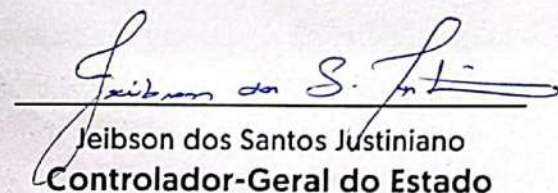 Jeibson dos S. Justi
Jeibson dos Santos Justiniano
Controlador-Geral do Estado